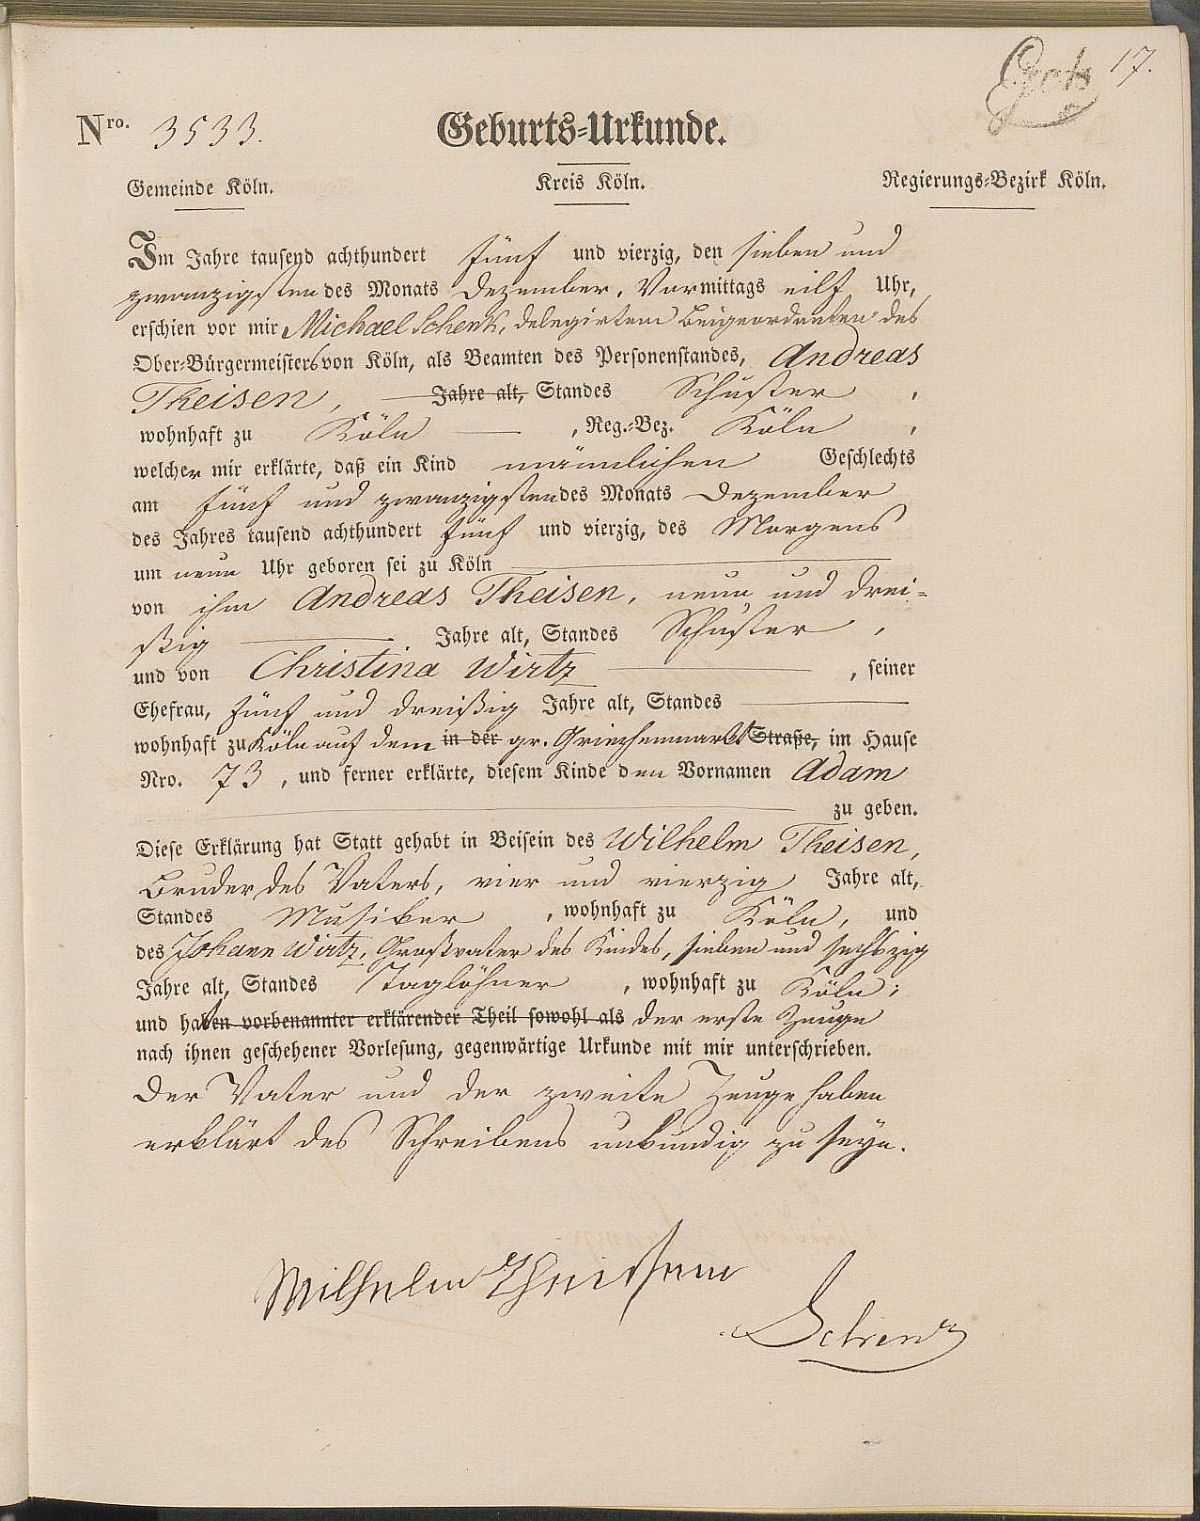 17.
Nro. 3533. Geburts-Urkunde.
Gemeinde Köln. Kreis Köln. Regierungs-Bezirk Köln.
Im Jahre tausend achthundert fünf und vierzig, den sieben und
zwanzigsten des Monats Dezember, Vormittags eilf Uhr,
erschien vor mir Michael Schenk, delegirtem Beigeordneten des
Ober-Bürgermeisters von Köln, als Beamten des Personenstandes, Andreas
Theisen, Jahre alt, Standes Schuster ,
wohnhaft zu Köln , Reg.-Bez. Köln ,
welcher mir erklärte, daß ein Kind männlichen Geschlechts
am fünf und zwanzigsten des Monats Dezember
des Jahres tausend achthundert fünf und vierzig, des Morgens
um neun Uhr geboren sei zu Köln
von ihm Andreas Theisen, neun und drei-
ßig Jahre alt, Standes Schuster ,
und von Christina Wirtz , seiner
Ehefrau, fünf und dreißig Jahre alt, Standes
wohnhaft zu Köln auf dem in der gr. Griechenmarkt Straße, im Hause
Nro. 73 , und ferner erklärte, diesem Kinde den Vornamen Adam
zu geben.
Diese Erklärung hat Statt gehabt in Beisein des Wilhelm Theisen,
Bruder des Vaters, vier und vierzig Jahre alt,
Standes Musiker , wohnhaft zu Köln, und
des Johann Wirtz, Großvater des Kindes, sieben und sechszig
Jahre alt, Standes Taglöhner , wohnhaft zu Köln;
und haben vorbenannter erklärender Theil sowohl als der erste Zeuge
nach ihnen geschehener Vorlesung, gegenwärtige Urkunde mit mir unterschrieben.
Der Vater und der zweite Zeuge haben
erklärt des Schreibens unkundig zu seyn.
Wilhelm Theissen
Schenk